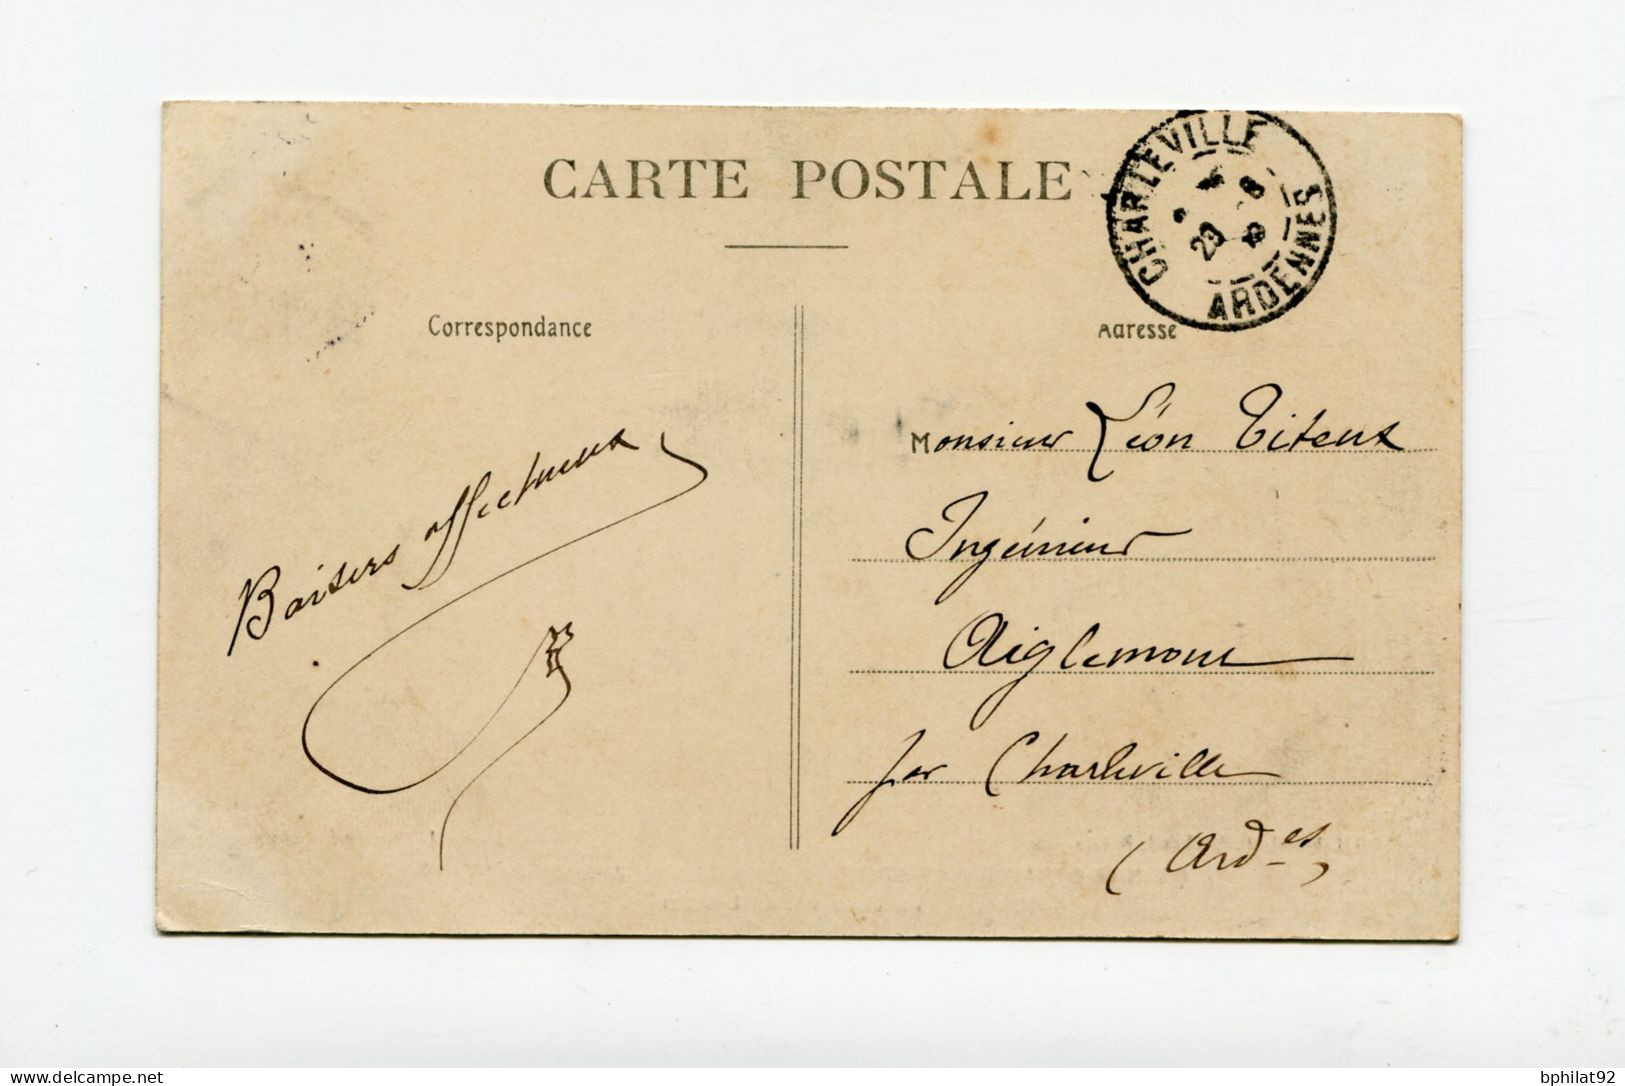 CARTE POSTALE
CHARLEVILLE
ARDENNES
Correspondance
Adresse
Baisers affectueux
Monsieur Léon Titeux
Ingénieur
Aiglemont
par Charleville
(Ard-es)
delcampe.net
bphilat92